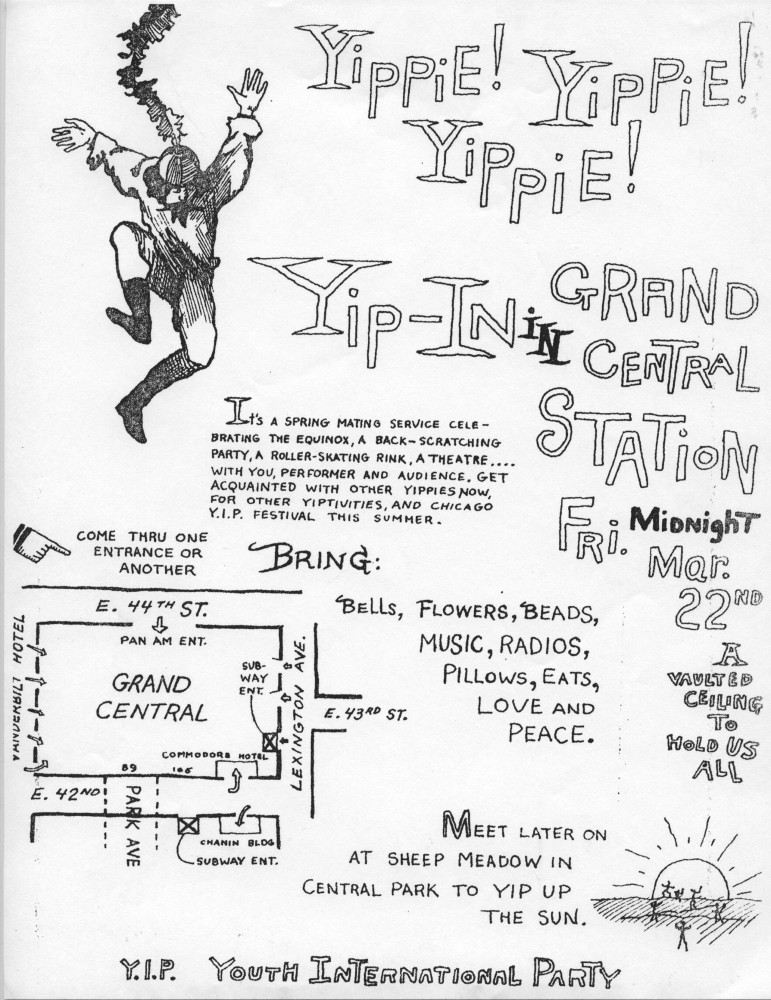 YIPPIE! YIPPIE!
YIPPIE!
YIP-IN IN GRAND
CENTRAL
STATION
FRI. MIDNIGHT
MAR.
22ND
A
VAULTED
CEILING
TO
HOLD US
ALL
IT'S A SPRING MATING SERVICE CELE-
BRATING THE EQUINOX, A BACK-SCRATCHING
PARTY, A ROLLER-SKATING RINK, A THEATRE....
WITH YOU, PERFORMER AND AUDIENCE. GET
ACQUAINTED WITH OTHER YIPPIES NOW,
FOR OTHER YIPTIVITIES, AND CHICAGO
Y.I.P. FESTIVAL THIS SUMMER.
COME THRU ONE
ENTRANCE OR
ANOTHER
BRING:
BELLS, FLOWERS, BEADS,
MUSIC, RADIOS,
PILLOWS, EATS,
LOVE AND
PEACE.
E. 44TH ST.
PAN AM ENT.
VANDERBILT HOTEL
GRAND
CENTRAL
SUB-
WAY
ENT.
LEXINGTON AVE.
E. 43RD ST.
COMMODORE HOTEL
89
E. 42ND
PARK AVE
CHANIN BLDG
SUBWAY ENT.
MEET LATER ON
AT SHEEP MEADOW IN
CENTRAL PARK TO YIP UP
THE SUN.
Y.I.P. YOUTH INTERNATIONAL PARTY